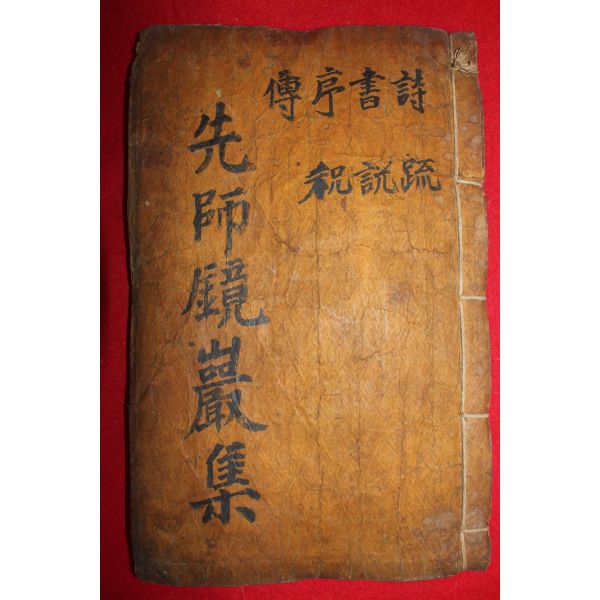 詩書序傳
疏說祝
先師鏡巖集